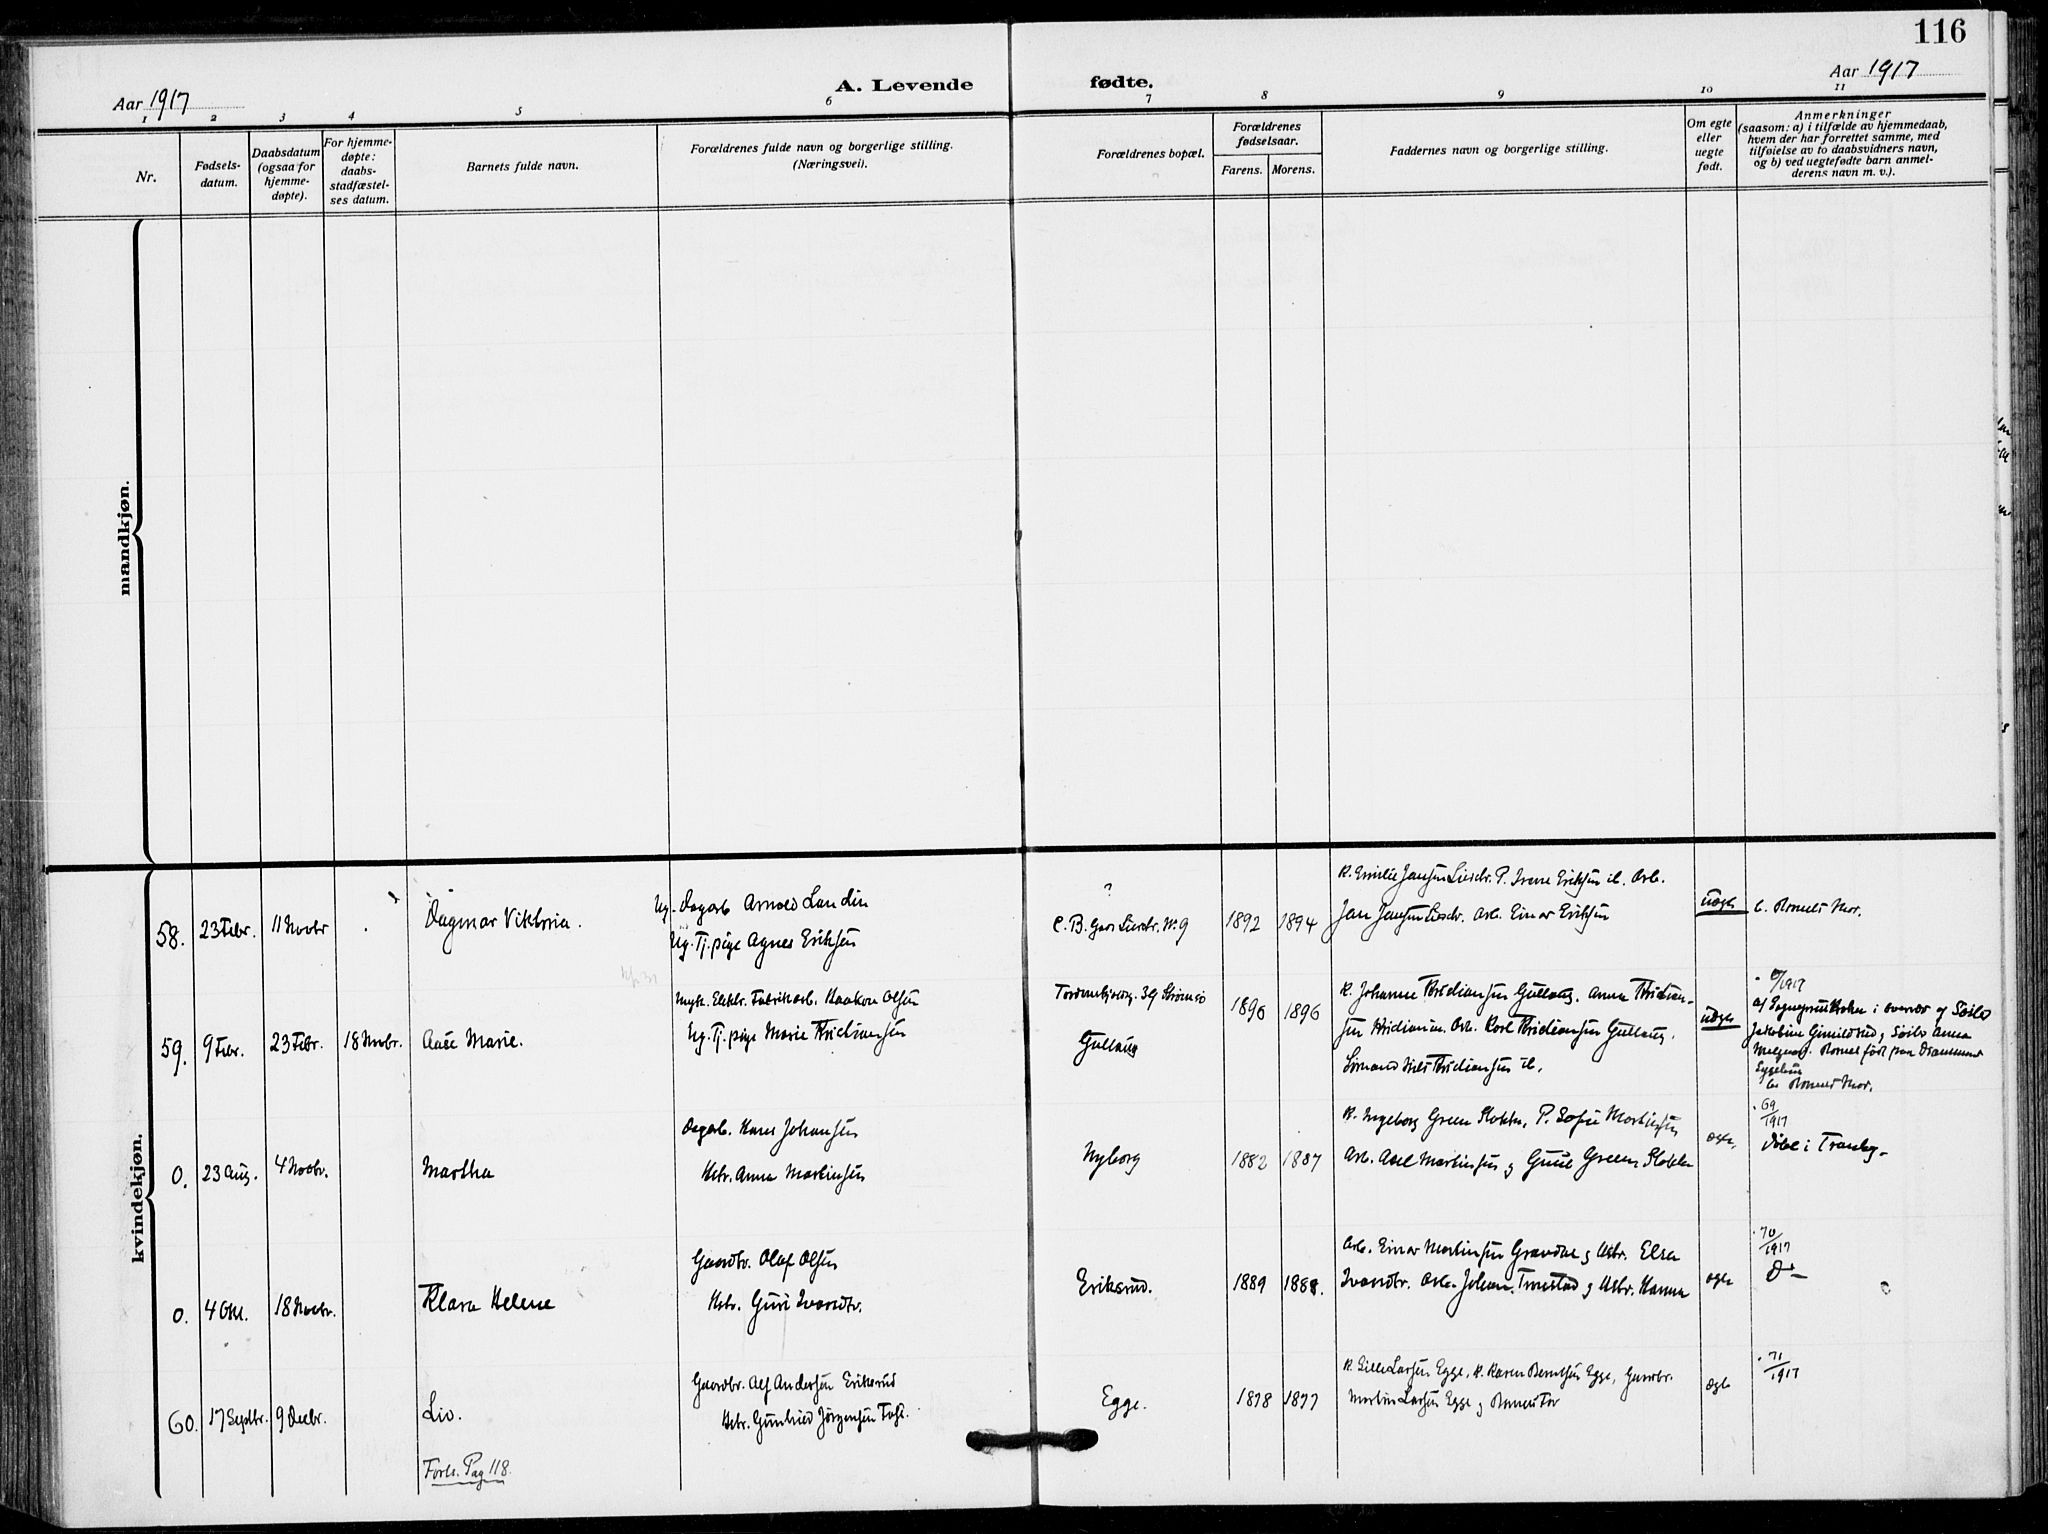 116
Aar 1917
A. Levende
fødte.
Aar 1917
1 2 3 4 5 6 7 8 9 10 11
Nr.
Fødsels-
datum.
Daabsdatum
(ogsaa for
hjemme-
døpte).
For hjemme-
døpte:
daabs-
stadfæstel-
ses datum.
Barnets fulde navn.
Forældrenes fulde navn og borgerlige stilling.
(Næringsvei).
Forældrenes bopæl.
Forældrenes
fødselsaar.
Farens. Morens.
Faddernes navn og borgerlige stilling.
Om egte
eller
uegte
født.
Anmerkninger
(saasom: a) i tilfælde av hjemmedaab,
hvem der har forrettet samme, med
tilføielse av to daabsvidners navn,
og b) ved uegtefødte barn anmel-
derens navn m. v.).
mandkjøn.
kvindekjøn.
58. 23 Febr. 11 Novbr
Dagmar Viktoria.
Ug. Dagarb. Arnold Lundin
Ug. Tj. pige Agnes Eriksen
?
1892 1894
K. Emilie Jansen Lierstr. P. Irene Eriksen ib. Arb.
Jan Jansen Lierstr. Arb. Einar Eriksen
uegte
b. Barnets Mor.
59. 9 Febr. 23 Febr. 18 Novbr.
Aase Marie.
Ugk. Elektr. Fabrikarb. Haakon Olsen
Ug. Tj. pige Marie Kristiansen
39 Strømsø
Gullaug
1890 1896
K. Johanne Kristiansen Gullaug. Anna Kristian-
sen Arb. Karl Kristiansen Gullaug.
Kristiansen ib.
uegte
/1917
b. Barnets Mor.
0. 23 Aug. 4 Novbr.
Martha
Dagarb. Hans Johansen
Hstr. Anna Martinsen
Nyborg
1882 1887
K. Ingeborg Green Stokke, P. Sofie Martinsen
Arb. Axel Martinsen og Green Stokke
egte.
69/1917
Døbt i Tranby
0. 4 Okt. 18 Novbr.
Klara Helene
Gaardbr. Olaf Olsen
Hstr. Guri Ivarsdtr.
Eriksrud.
1889 1888.
Arb. Einar Martinsen og Ustr. Elsa
Ivarsdtr. Arb. Johan og Ustr. Hanna
egte
70/1917
Do
60. 17 Septbr. 9 Decbr.
Liv.
Gaardbr. Alf Andersen Eriksrud
Hstr. Gunhild Jørgensen
Egge.
1878 1877
K. Larsen Egge, K. Karen Berntsen Egge, Gaardbr.
Martin Larsen Egge og Barnets Far
egte
71/1917
Forts. Pag 118.